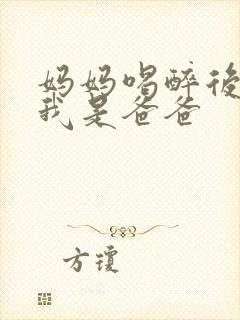 妈妈喝醉後
我是爸爸
方瓊